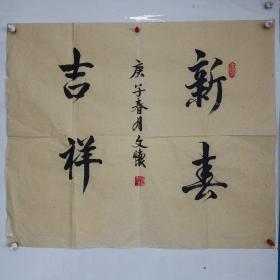 新春
吉祥
庚子春月文怀